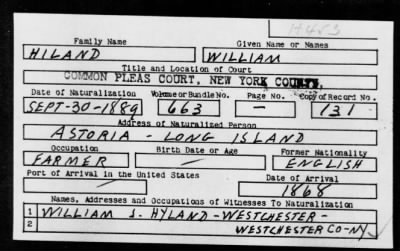 Family Name Given Name or Names
HILAND WILLIAM
Title and Location of Court
COMMON PLEAS COURT, NEW YORK COUNTY.
Date of Naturalization Volume or Bundle No. Page No. Copy of Record No.
SEPT-30-1889 663 — 131
Address of Naturalized Person
ASTORIA - LONG ISLAND
Occupation Birth Date or Age Former Nationality
FARMER — ENGLISH
Port of Arrival in the United States Date of Arrival
— 1868
Names, Addresses and Occupations of Witnesses To Naturalization
1 WILLIAM S. HYLAND-WESTCHESTER-
2 WESTCHESTER CO-NY